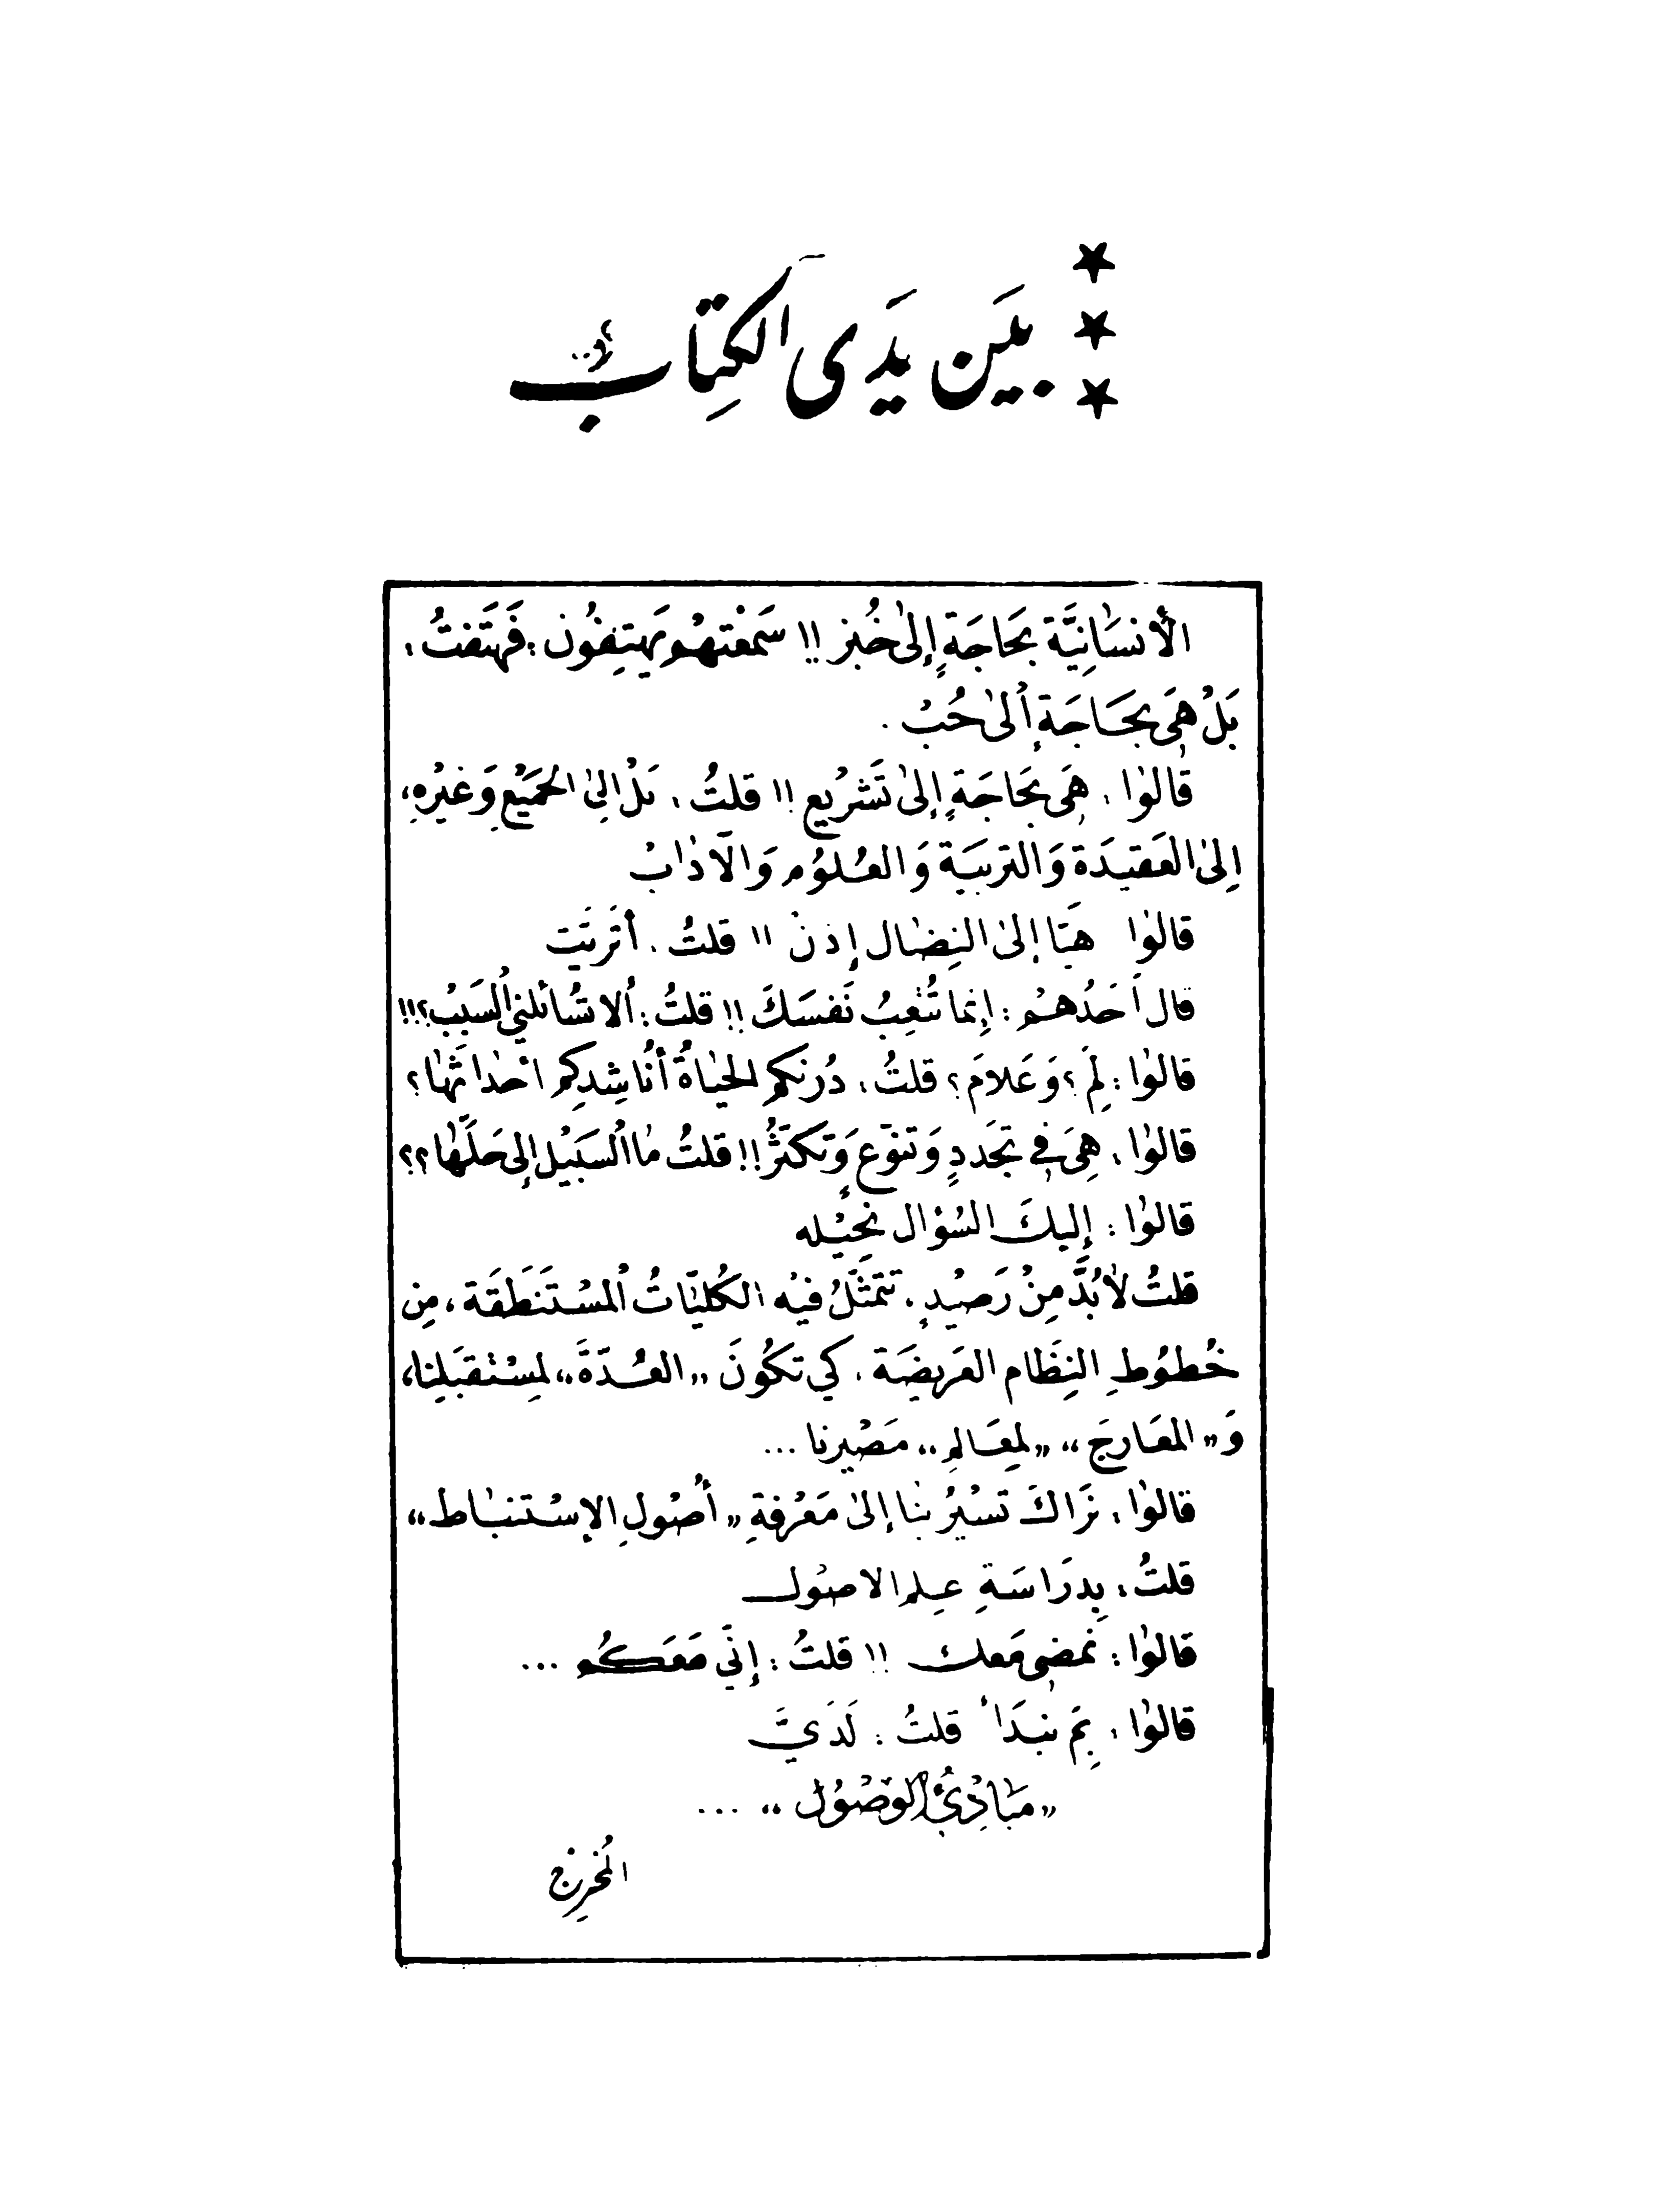 بَين يَدَى الكِتاب
الأنسَانِيَّة بحَاجَةٍ إلىٰ خُبز !! سَمعْتهُم يَهتِفُون : فَهَتَفتُ :
بَلْ هِيَ بحَاجَةٍ ألىٰ حُبْ .
قالوُا : هِيَ بحَاجَةٍ إلىٰ تَشرْيعٍ !! قلتُ : بَلْ الىٰ الجَميْعِ وَغيْرِهِ،
اِلىٰ العَقيدَة وَالتربيَة وَالعُلوُم وَالآدٰابْ
قالوُا هيَّا إلىٰ النِضٰال إذنْ !! قلتُ . أتَربَّت
قال أحَدُهمْ : إنما تُتْعِبُ نَفسَكَ !! قلتُ : ألا تُسٰائلني ألسَببْ ؟!!
قالوُا : لِمَ ؟ وَعَلامَ ؟ قلتُ : دُونكم الحيٰاةُ أُناشِدكم احْدٰاثَهٰا ؟
قالوُا : هِيَ في تجَددٍ وَتنوّعٍ وَتكَثّرٍ !! قلتُ مٰا ألسَبيْل إلى حَلّهٰا ؟؟
قالوُا : إليكَ السُؤال نحيْله
قلتُ لاٰبُدَّ مِنْ رَصيْدٍ . تتمَثَّلُ فيْه الكُليّاتُ ألمسْتَنَطَقَة ، مِن
خُطوُطِ النِظَام العَريضَة . كي تكُونَ ,, العُدّةَ ،، لمِسْتقبَلِنا،
وَ ,, المعَارِجَ ،، ,, لمِعَالمِ ،، مَصْيرنا ...
قالوُا : نَرَاكَ تسيْرُ بنا إلىٰ مَعْرفةِ ,, أصُوْلِ الإسْتنبٰاط ،،
قلتُ : بِدرَاسَةِ عِلم الاصوُل
قالوُا : نَمضي مَعك !! قلتُ : إنّي مَعَكُم ...
قالوُا : بِمَ نبدَأ قلتُ : لَدَيَّ
,, مبَادِئُ الوصُوُل ،، ...
المُخرج